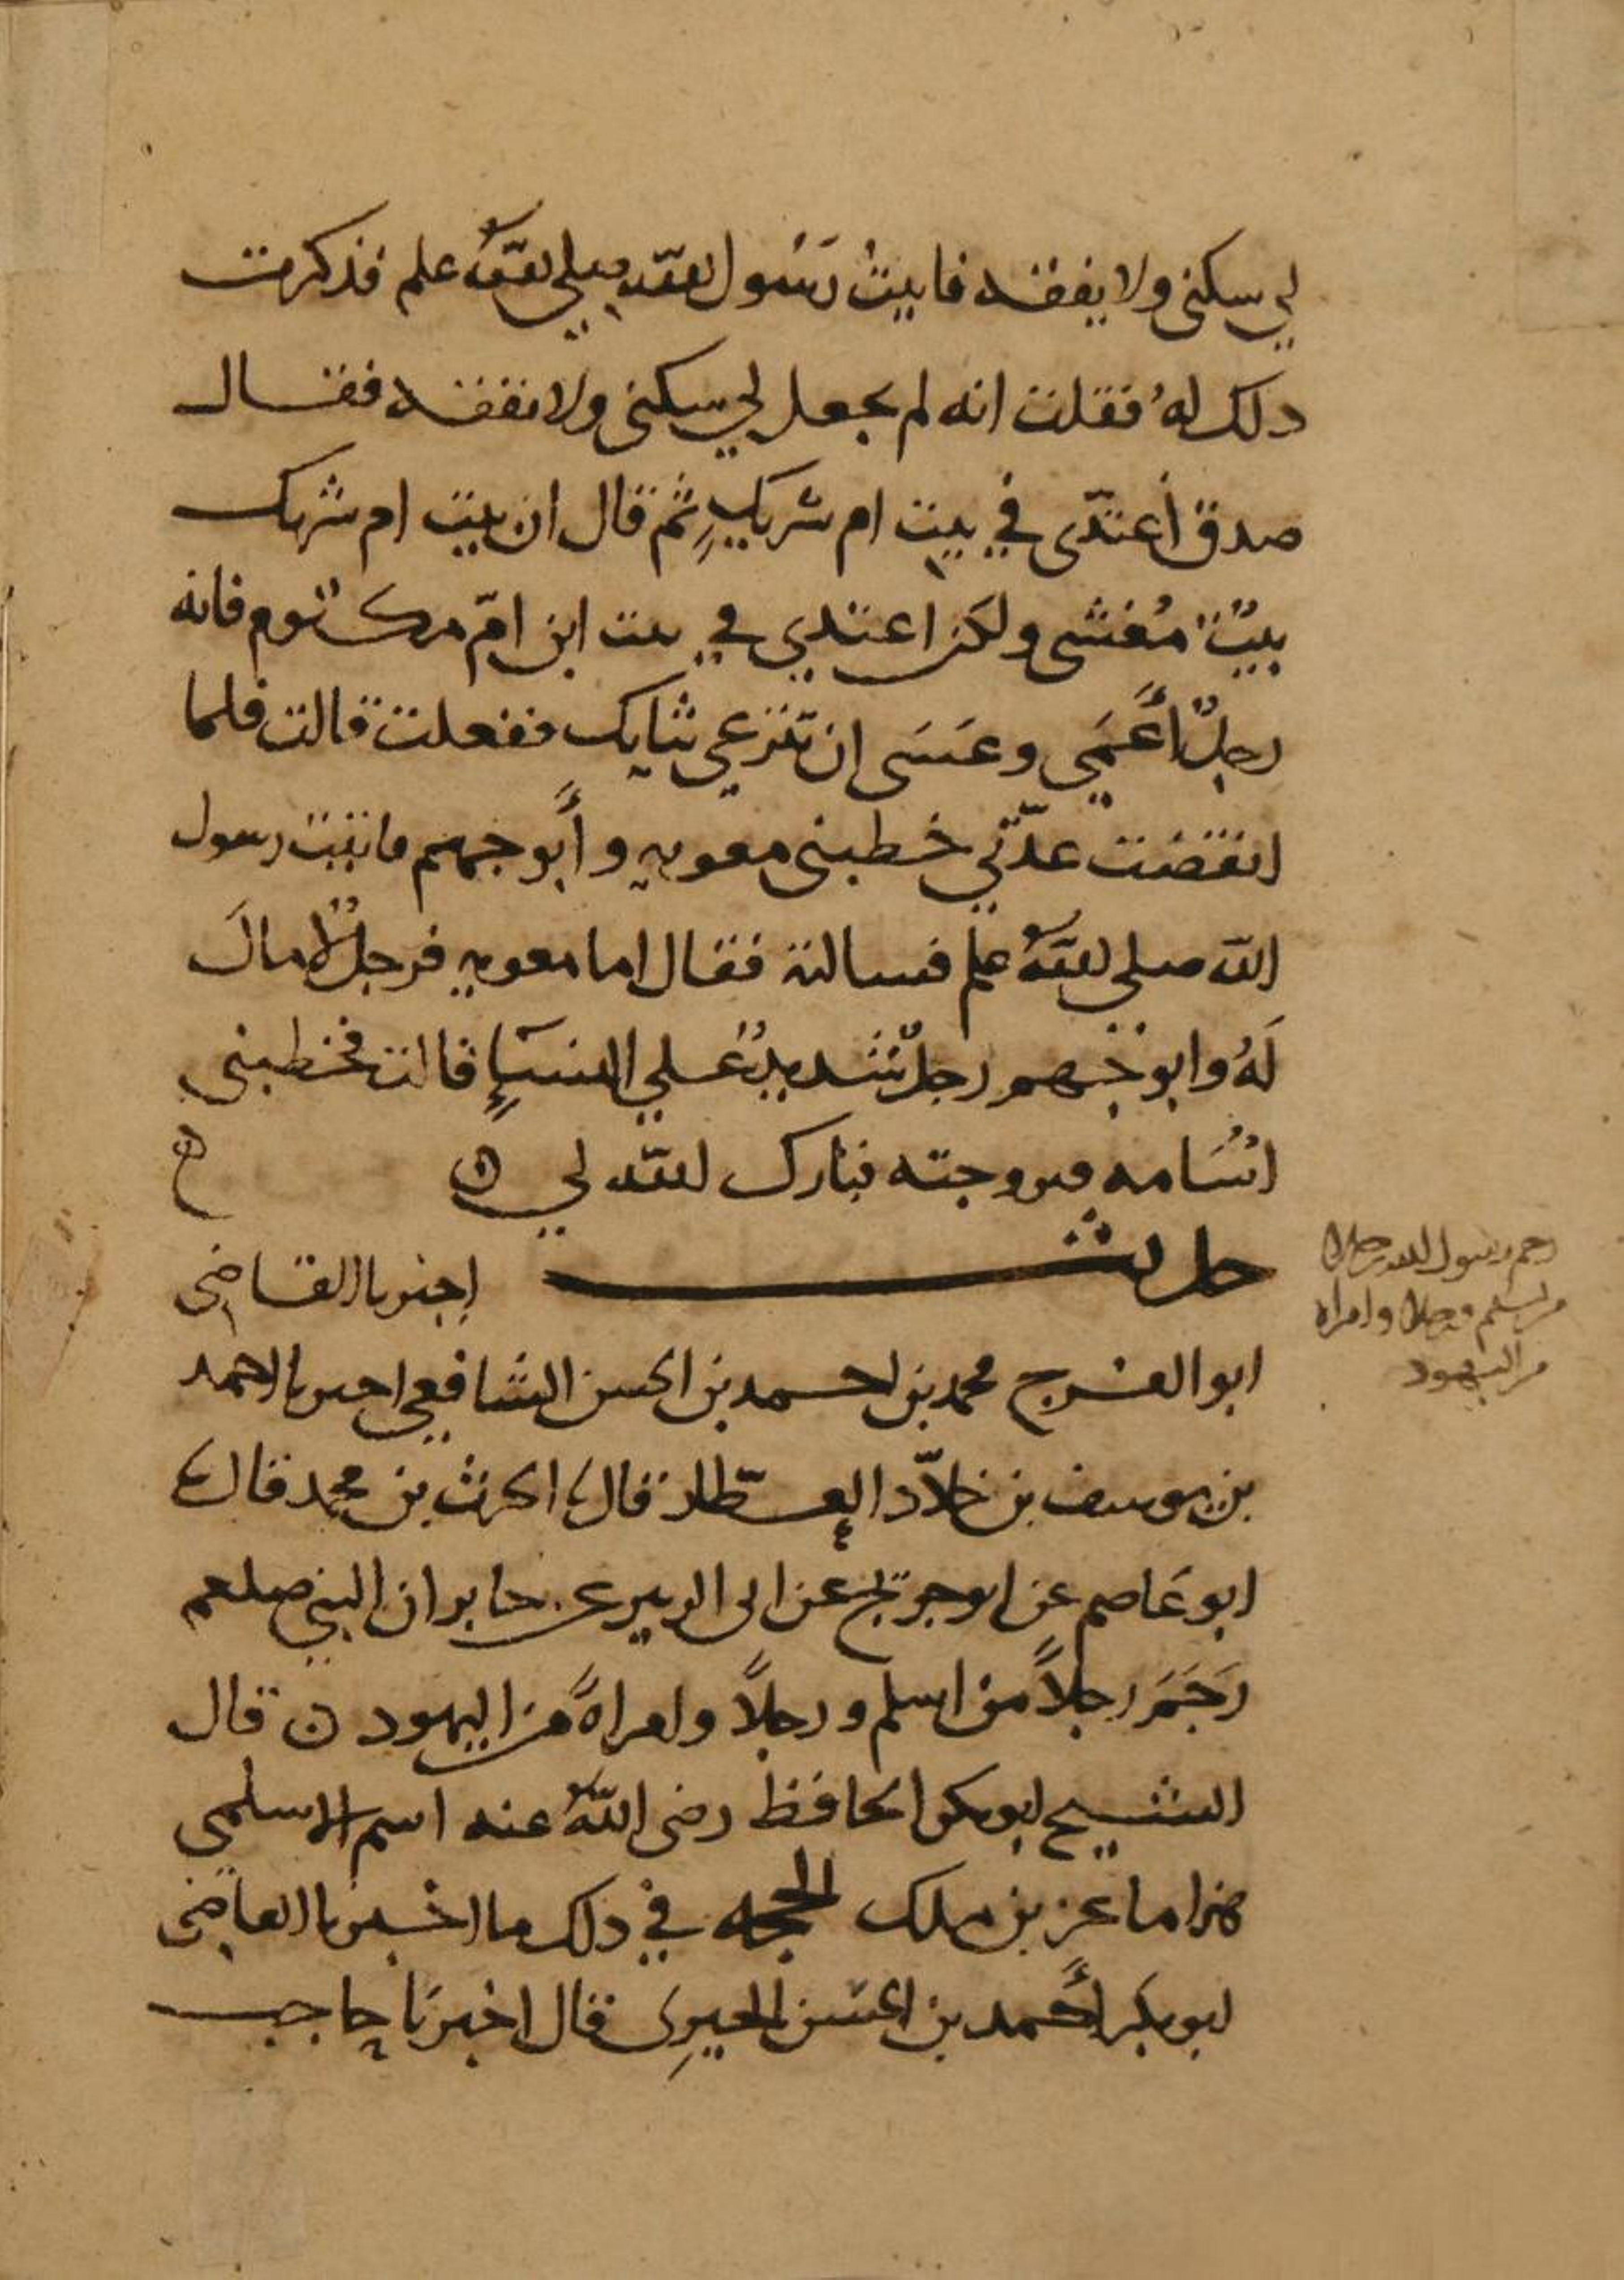 لي سكنى ولا نفقه فاتيت رسول الله صلى الله علم فذكرت
ذلك له فقلت انه لم يجعل لي سكنى ولا نفقه فقال
صدق أعتدّى في بيت ام شريكٍ ثم قال ان بيت ام شريك
بيتٌ مُغشى ولكن اعتدي في بيت ابن امّ مكتوم فانه
رجلٌ أعمَى وعَسَى ان تنزعي ثيابك ففعلت قالت فلما
انقضت عدّتي خطبني معويه وأبو جهم فاتيت رسول
الله صلى الله علم فسالته فقال اما معويه فرجلٌ لا مالَ
لَهُ وابو جهم رجلٌ شديدٌ على النسآءِ قالت فخطبني
اسُامه فتزوجته فبارك الله لي ه
حديث اخبرنا القاضي
ابو الفرج محمد بن احمد بن الحسن الشافعي اخبرنا احمد
بن يوسف بن خلاّد العطّار قال نا الحرث بن محمد قال نا
ابو عَاصم عن ابن جريج عن ابى الزبير عن جابر ان النبي صلعم
رَجَمَ رجلاً من اسلم ورجلاً وامراةً من اليهود ن قال
الشيخ ابو بكر الحافظ رضى اللّه عنه اسم الاسلمي
هذا ماعز بن ملك الحجه في ذلك ما اخبرنا القاضي
ابو بكر أحمد بن الحسن الحيرِى قال اخبرنا حاجب
رجم رسول الله رجلا
من اسلم ورجلا وامراه
من اليهود